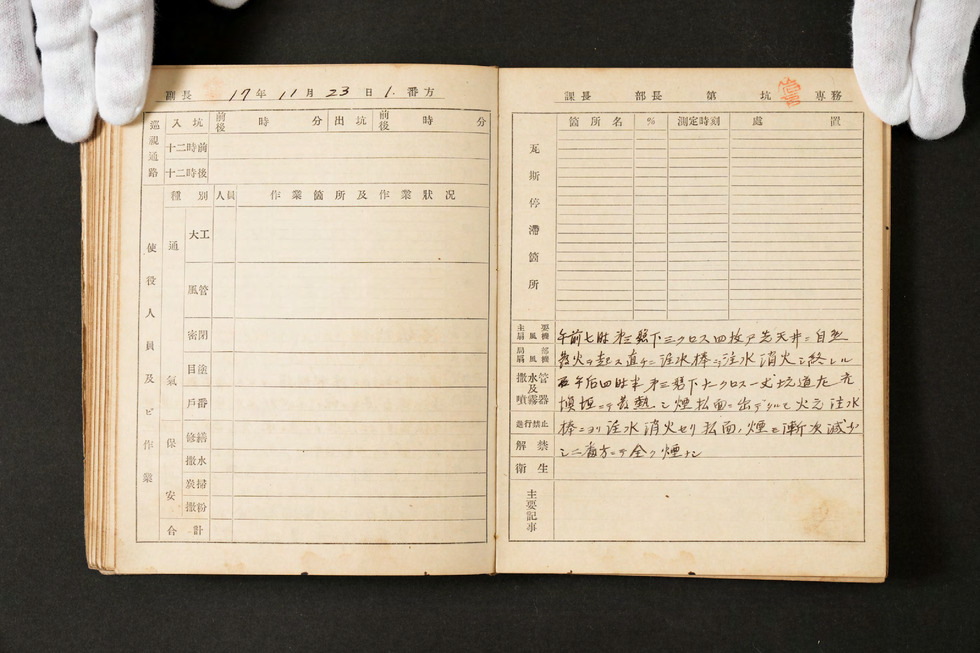 副長 17年11月23日1.番方
巡視通路
入坑 前後 時 分 出坑 前後 時 分
十二時前
十二時後
使役人員及ビ作業
種別 人員 作業箇所及作業狀況
通氣
大工
風管
密閉
目塗
戶番
保安
修繕
撒水
炭掃
撒粉
合計
課長 部長 第 坑 專務
瓦斯停滯箇所
箇所名 % 測定時刻 處置
主要扇風機
局部扇風機
撒水管及噴霧器
進行禁止
解禁
衛生
主要記事
午前七時 第三 下三クロス四枚戸先天井ニ自然
發火ヲ起ス直チニ注水棒ニテ注水消火シ終レル
午后四時半第三 下 クロス 坑道左
ニテ發熱シ煙払面ニ出デ 火元注水
棒ニヨリ注水消火セリ払面ノ煙モ漸次減少
シ二番方ニテ全ク煙ナシ